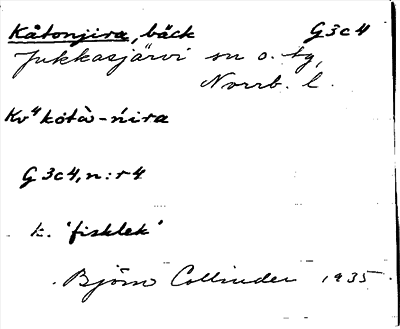 Kåtonjira, bäck G3c4
Jukkasjärvi sn o. tg,
Norrb. l.
Kv⁴ kotà-ńira
G3c4, n:r 4
k. 'fisklek'
Björn Collinder 1935